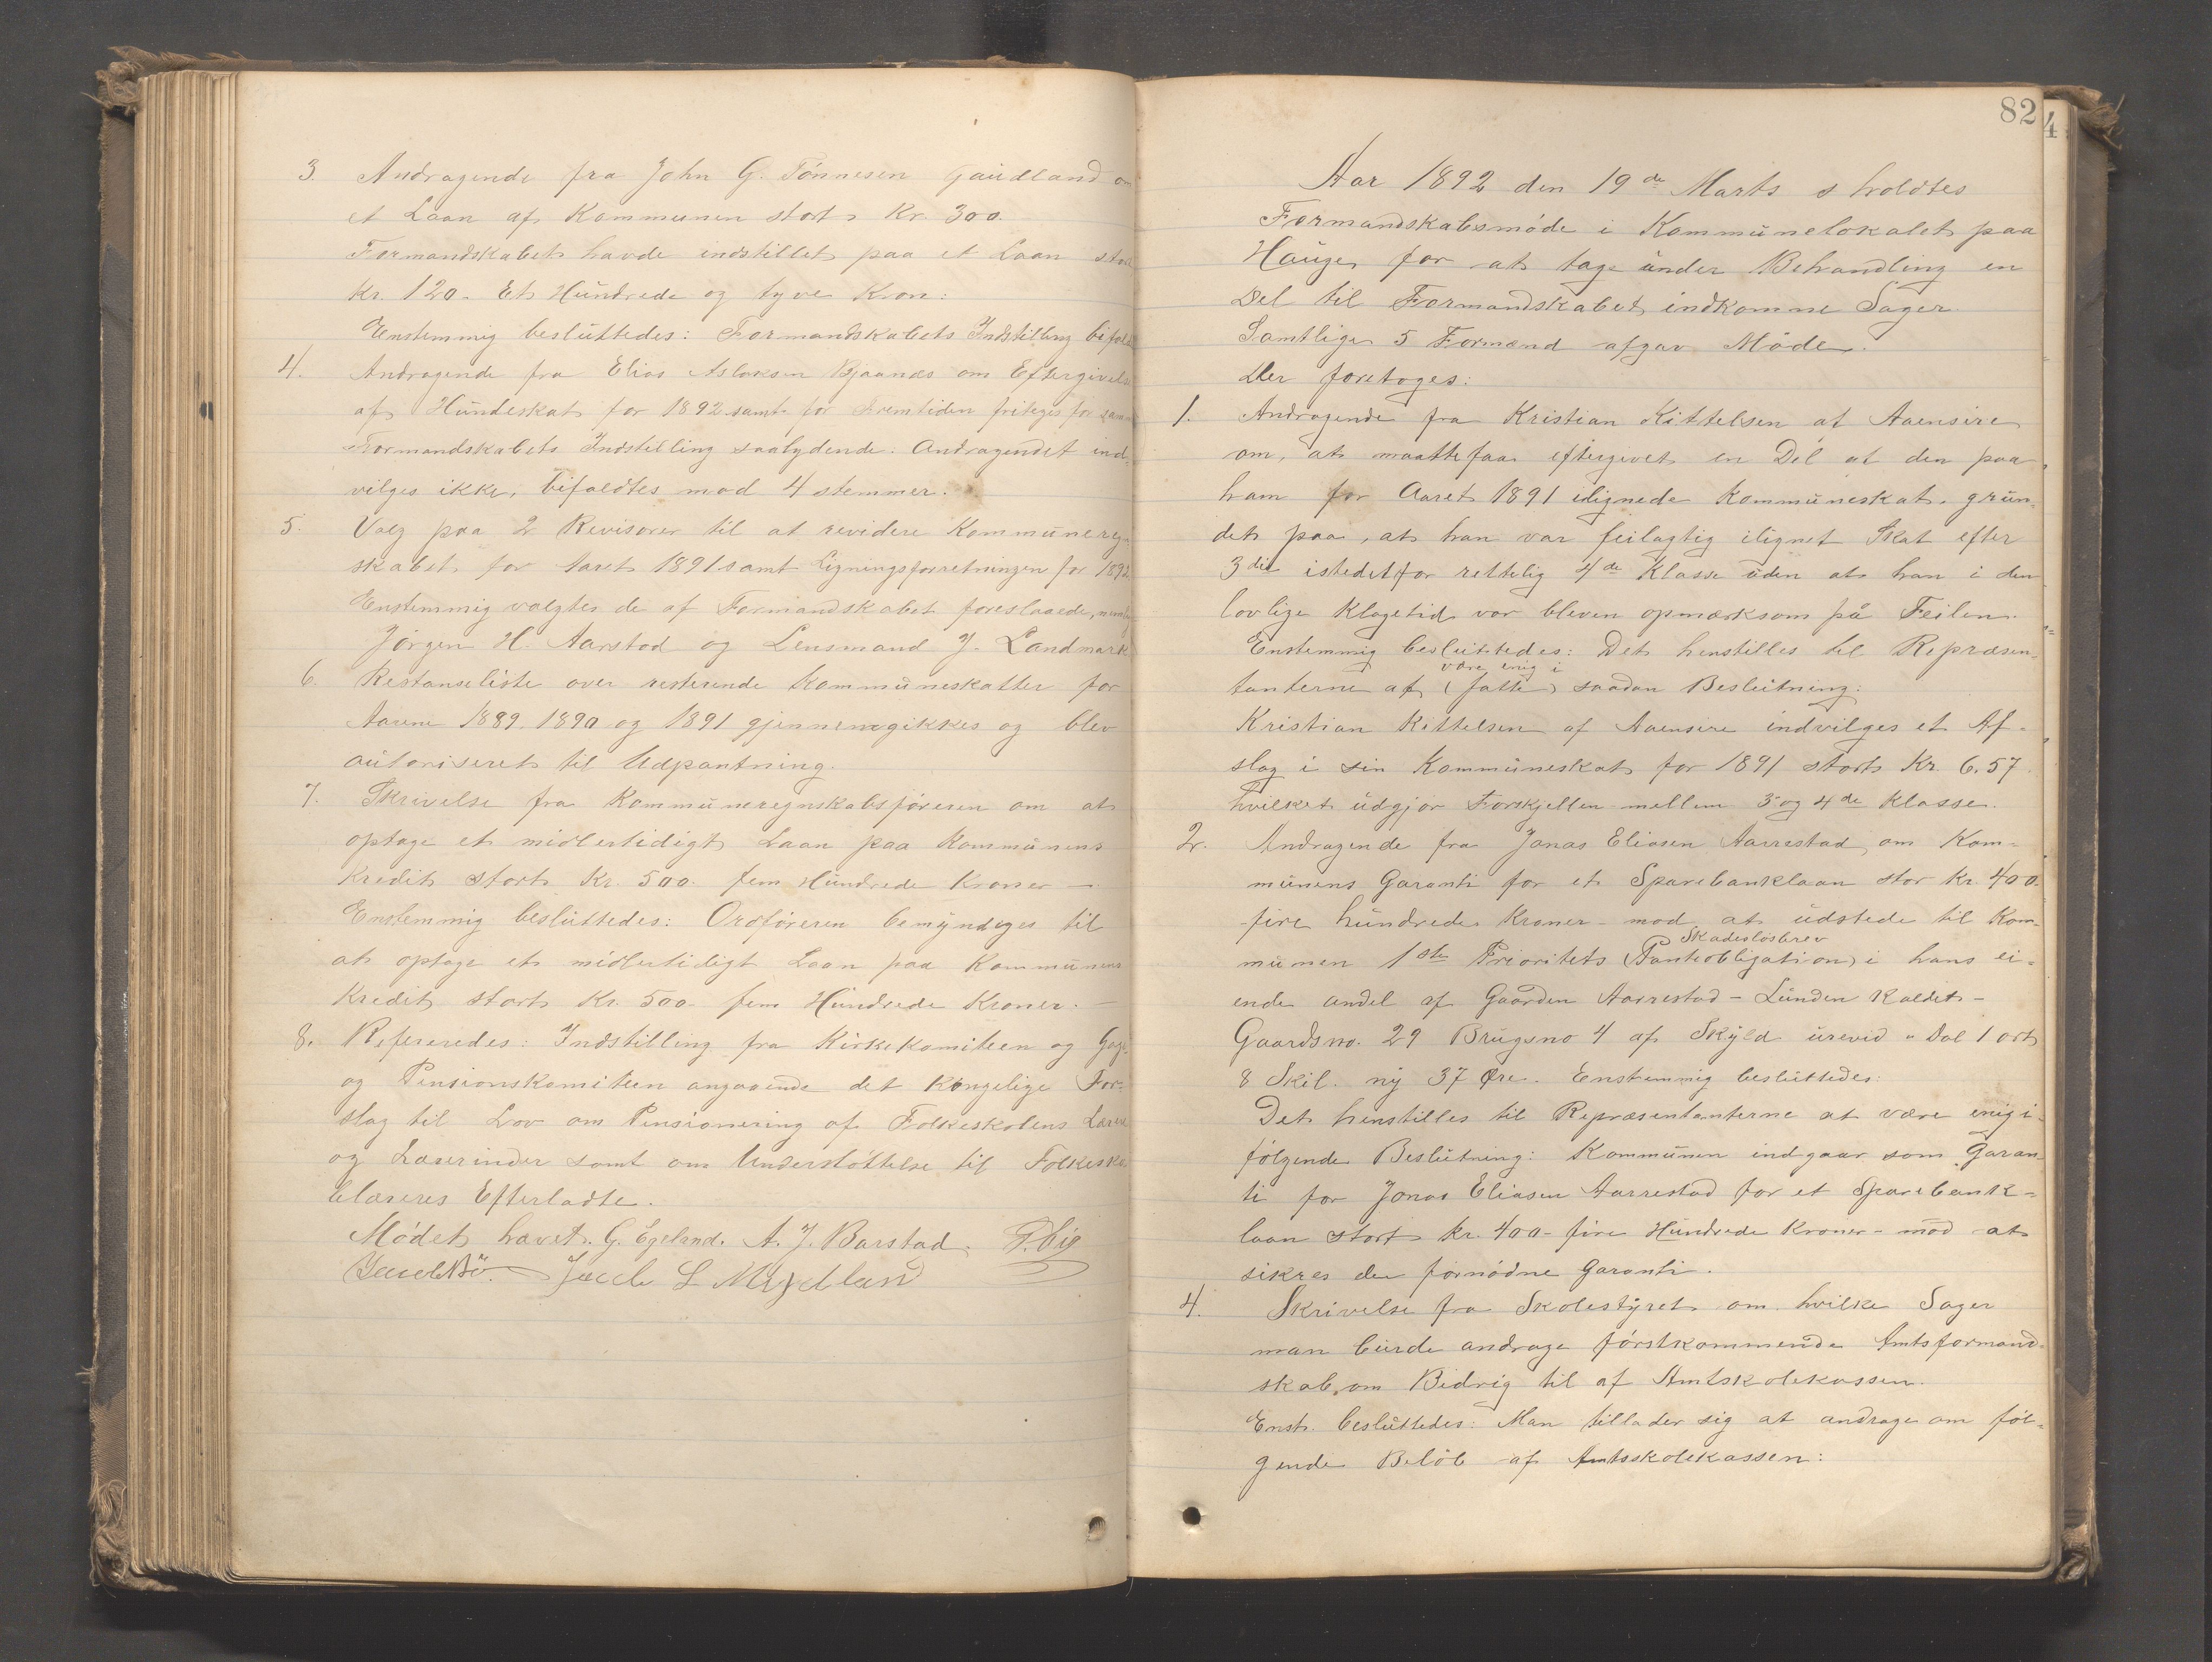 3. Andragende fra John G. Tönnesen Gaudland om
et Laan af Kommunen stort Kr. 300.
Formandskabet havde indstillet paa et Laan stort
Kr. 120. Et Hundrede og tyve Kron:
Enstemmig besluttedes: Formandskabets Indstilling bifald
4. Andragende fra Elias Aslaksen Bjaanæs om Eftergivelse
af Hundeskat for 1892 samt for Fremtiden fritages for samme
Formandskabets Indstilling saalydende: Andragendet ind-
vilges ikke, bifaldtes mod 4 stemmer.
5. Valg paa 2 Revisorer til at revidere Kommunereg-
skabet for Aaret 1891 samt Ligningsforretningen for 1892
Enstemmig valgtes de af Formandskabet foreslaaede, nemlig
Jörgen H. Aarstad og Lensmand J. Landmark
6. Restanseliste over resterende Kommuneskatter for
Aarene 1889. 1890 og 1891 gjennemgikkes og blev
autoriseret til Udpantning.
7. Skrivelse fra Kommuneregnskabsföreren om at
optage et midlertidigt Laan paa Kommunens
Kredit stort Kr. 500. fem Hundrede Kroner —
Enstemmig besluttedes: Ordföreren bemyndiges til
at optage et midlertidigt Laan paa Kommunens
Kredit stort Kr. 500. fem Hundrede Kroner. —
8. Refereredes: Indstilling fra Kirkekomiteen og Gage
og Pensionskomiteen angaaende det kongelige For-
slag til Lov om Pensionering af Folkeskolens Lærere
og Lærerinder samt om Understöttelse til Folkesko-
lelæreres Efterladte.
Mödet hævet. G. Egeland. A. J. Barstad.
Jacob L Mydland
82
4
Aar 1892 den 19de Marts holdtes
Formandskabsmöde i Kommunelokalet paa
Hauge, for at tage under Behandling en
Del til Formandskabet indkomne Sager.
Samtlige 5 Formænd afgav Möde.
Der foretoges:
1. Andragende fra Kristian Kittelsen af Aaensire
om, at maatte faa eftergivet en Del af den paa
ham for Aaret 1891 ilignede Kommuneskat, grun-
det paa, at han var feilagtig ilignet Skat efter
3die istedetfor rettelig 4de Klasse uden at han i den
lovlige Klagetid var bleven opmærksom på Feilen.
Enstemmig besluttedes: Det henstilles til Repræsen-
være enig i
tanterne at (fatte) saadan Beslutning:
Kristian Kittelsen af Aaensire indvilges et Af-
slag i sin Kommuneskat for 1891 stort Kr. 6.57.
hvilket udgjör Forskjellen mellem 3 og 4de Klasse.
2. Andragende fra Jonas Eliasen Aarrestad om Kom-
munens Garanti for et Sparebanklaan stor kr. 400.
fire hundrede Kroner mod at udstede til Kom-
Skadeslösbrev
munen 1ste Prioritets (Panteobligation) i hans ei-
ende andel af Gaarden Aarrestad - Lunden kaldet -
Gaardsno. 29 Brugsno 4 af Skyld urevid " Dal 1 ort
8 Skil. ny 37 Øre. Enstemmig besluttedes:
Det henstilles til Repræsentanterne at være enig i
fölgende Beslutning: Kommunen indgaar som Garan-
ti for Jonas Eliasen Aarrestad for et Sparebank-
laan stort kr. 400 - fire Hundrede Kroner - mod at
sikres den fornödne Garanti.
4. Skrivelse fra Skolestyret om hvilke Sager
man burde andrage förstkommende Amtsformand-
skab, om Bidrig til af Amtskolekassen.
Enst. besluttedes: Man tillader sig at andrage om föl-
gende Belöb af Amtsskolekassen: